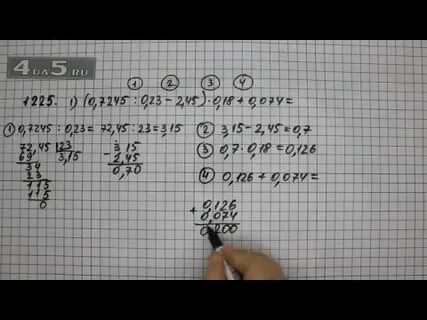 4DA5.RU
1 2 3 4
1225. 1) (0,7245 : 0,23 - 2,45) · 0,18 + 0,074 =
1) 0,7245 : 0,23 = 72,45 : 23 = 3,15
72,45 23
69 3,15
34
23
115
115
0
3,15
- 2,45
0,70
2) 3,15 - 2,45 = 0,7
3) 0,7 · 0,18 = 0,126
4) 0,126 + 0,074 =
0,126
+ 0,074
0,200